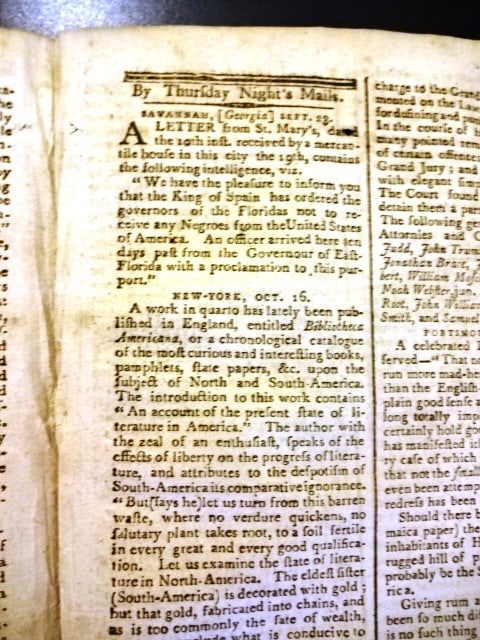 By Thursday Night's Mails.
SAVANNAH, [Georgia] SEPT. 23.
A LETTER from St. Mary's, dated
the 10th inst. received by a mercan-
tile house in this city the 19th, contains
the following intelligence, viz.
"We have the pleasure to inform you
that the King of Spain has ordered the
governors of the Floridas not to re-
ceive any Negroes from the United States
of America. An officer arrived here ten
days past from the Governour of East-
Florida with a proclamation to this pur-
port."
NEW-YORK, OCT. 16.
A work in quarto has lately been pub-
lished in England, entitled Bibliotheca
Americana, or a chronological catalogue
of the most curious and interesting books,
pamphlets, state papers, &c. upon the
subject of North and South-America.
The introduction to this work contains
"An account of the present state of li-
terature in America." The author with
the zeal of an enthusiast, speaks of the
effects of liberty on the progress of litera-
ture, and attributes to the despotism of
South-America its comparative ignorance.
"But [says he] let us turn from this barren
waste, where no verdure quickens, no
salutary plant takes root, to a soil fertile
in every great and every good qualifica-
tion. Let us examine the state of litera-
ture in North-America. The eldest sister
(South-America) is decorated with gold;
but that gold, fabricated into chains, and
as is too commonly the fate of wealth,
what is conducive to
charge to the Grand
mented on the Law
In the course of h
many pointed rem
of certain offences
Grand Jury; and
with elegant simp
The Court found
detain them a
The following ge
Attorneys and C
Judd, John Trum
Jonathan Brace, J
bert, William Mose
Noah Webster, jun.
Root, John William
Smith, and Samuel
PORTSMO
A celebrated
served—"That no
run more mad-he
than the English
plain good sense a
long totally imp
certainly hold go
has manifested it
ry case of which
that not the small
even been attemp
redress has been
Should there b
maica paper) the
inhabitants of H
rugged hill of p
probably be the S
rica.
Giving rum a
been so much di
is no such thing